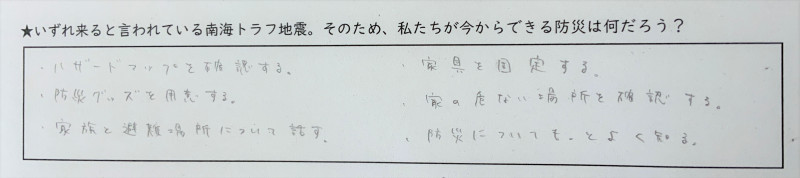 ★いずれ来ると言われている南海トラフ地震。そのため、私たちが今からできる防災は何だろう？
・ハザードマップを確認する。
・防災グッズを用意する。
・家族と避難場所について話す。
・家具を固定する。
・家の危ない場所を確認する。
・防災についてもっとよく知る。